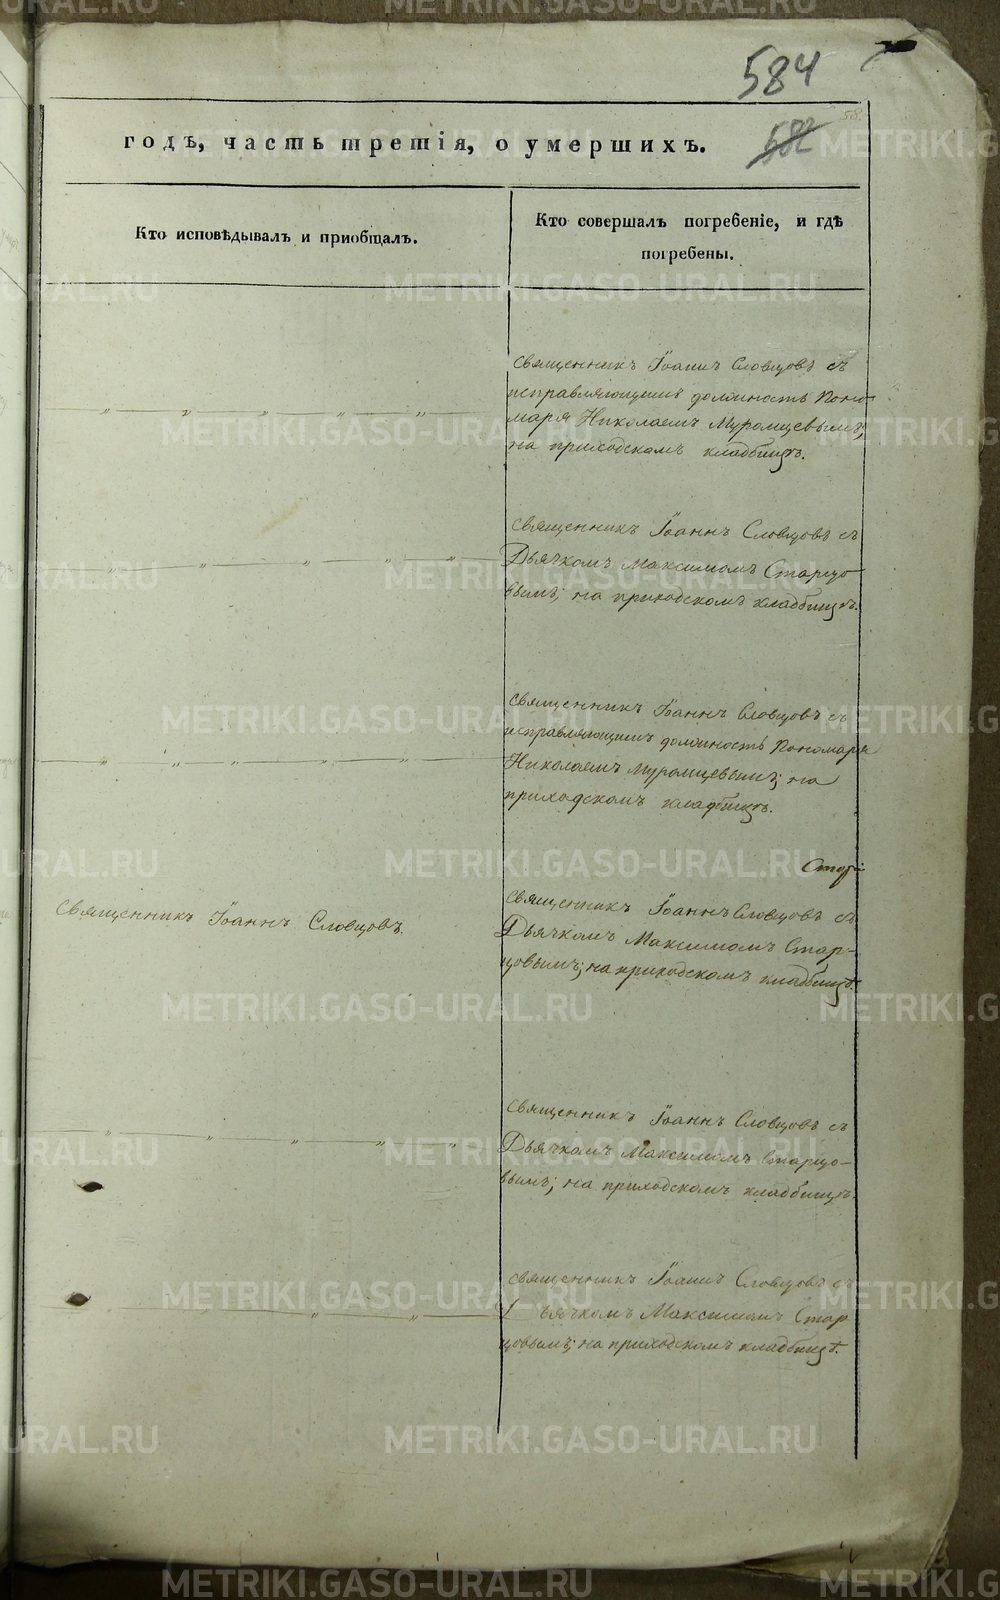 584
582
годъ, часть третія, о умершихъ.
Кто исповѣдывалъ и пріобщалъ.
Кто совершалъ погребеніе, и гдѣ
погребены.
Священникъ Іоаннъ Словцовъ съ
исправляющимъ должность Поно-
маря Николаемъ Муромцевымъ;
на приходскомъ кладбищѣ.
Священникъ Іоаннъ Словцовъ съ
Дьячкомъ Максимомъ Старцо-
вымъ; на приходскомъ кладбищѣ.
Священникъ Іоаннъ Словцовъ съ
исправляющимъ должность Пономаря
Николаемъ Муромцевымъ; на
приходскомъ кладбищѣ.
Священникъ Іоаннъ Словцовъ.
Священникъ Іоаннъ Словцовъ съ
Дьячкомъ Максимомъ Стар-
цовымъ; на приходскомъ кладбищѣ.
Священникъ Іоаннъ Словцовъ съ
Дьячкомъ Максимомъ Старцо-
вымъ; на приходскомъ кладбищѣ.
Священникъ Іоаннъ Словцовъ съ
Дьячкомъ Максимомъ Стар
цовымъ; на приходскомъ кладбищѣ.
METRIKI.GASO-URAL.RU